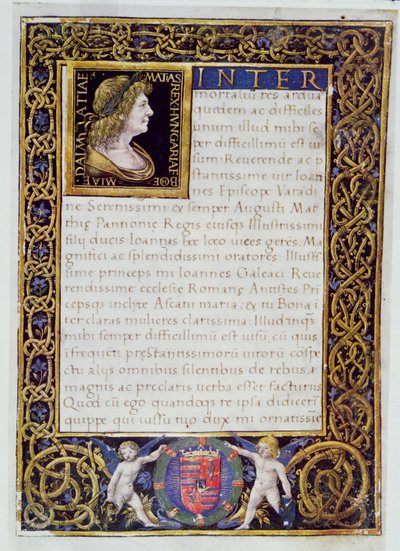 MATIAS REX HVNGARIAE BOE MIAE DALMATIAE
INTER
mortaliũ res ardua
quędem ac difficiles
unum illud mihi se
per difficillimũ est ui
sum: Reuerende ac p
stantissime uir Ioan
nes Episcope Varadi
nẽ Serenissimi & semper Augusti Mat
thię Pannonię Regis eiusq; Illustrissimi
filij ducis Ioannis hoc loco uices gerẽs: Ma
gnifici ac splendidissimi oratores: Illustis
sime princeps mi Ioannes Galeaci Reue
rendissime ecclesię Romanę Antistes Pri
cepsq; inclyte Ascani maria: & tu Bona i
ter claras mulieres clarissima: Illud inq;
mihi semper difficillimũ est uisũ, cũ quis
i frequẽti prestantissimorũ uirorũ cospe
ctu alijs omnibus silentibus de rebus
magnis ac preclaris uerba esset facturus
Quod cũ ego quandoq; re ipsa didicerĩ
quippe qui iussu tuo dux mi ornatissiẽ